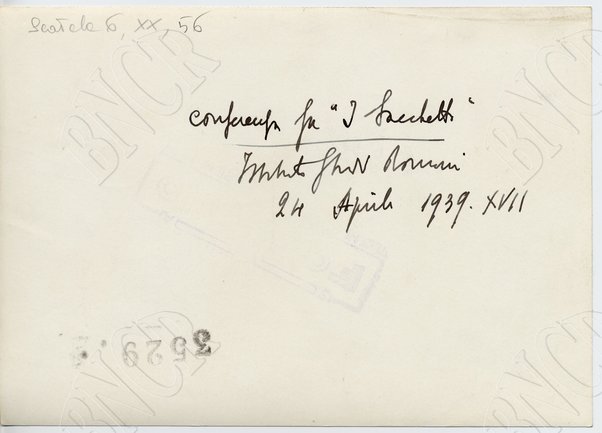 Scatola 6, XX, 56
Conferenza su "I Sacchetti"
Istituto Studi Romani
24 Aprile 1939. XVII
3529
BNCR
BNCR
BNCR
BNCR